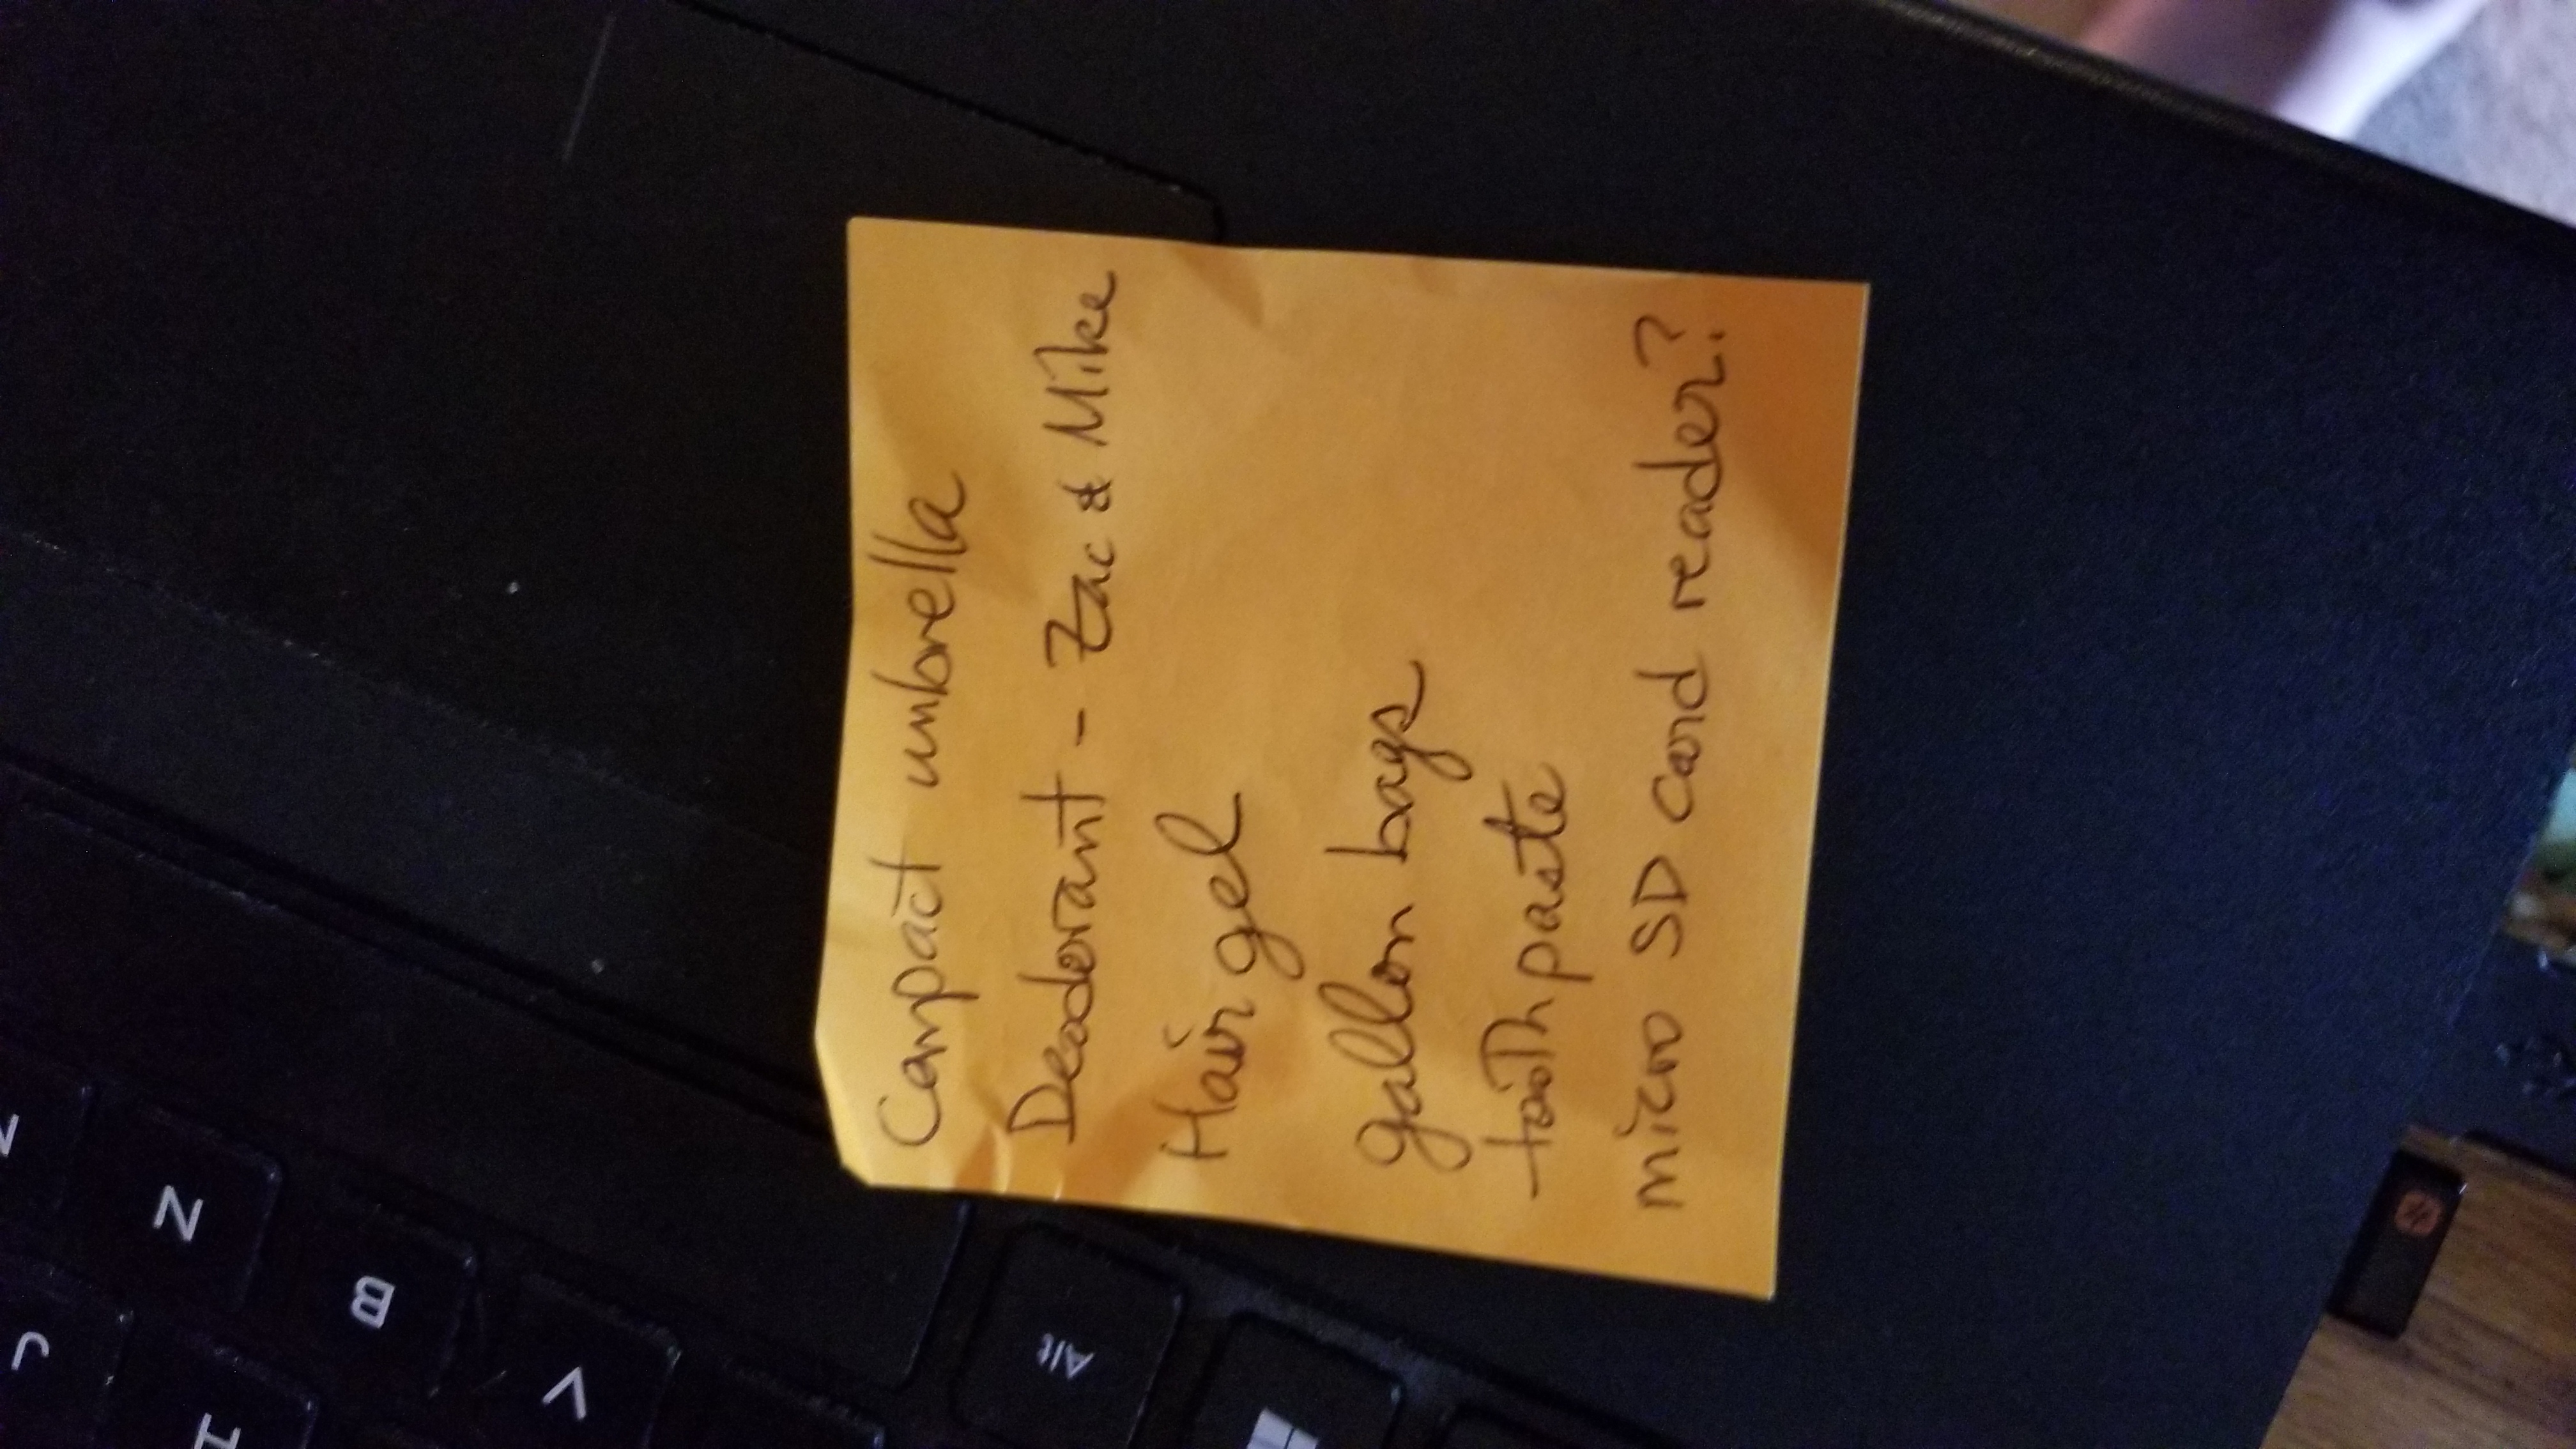 Compact umbrella
Deoderant - Zac & Mike
Hair gel
gallon bags
toothpaste
micro SD card reader?
N
B
V
Alt
J
H